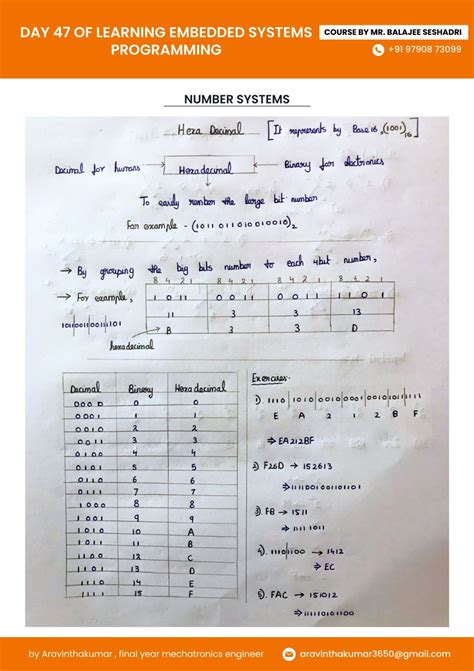 DAY 47 OF LEARNING EMBEDDED SYSTEMS PROGRAMMING
COURSE BY MR. BALAJEE SESHADRI
+91 97908 73099
NUMBER SYSTEMS
Hexa Decimal [It represents by Base 16, (1001)16]
Decimal for humans Hexadecimal Binary for electronics
To easily remember the large bit number
For example - (1011 011010010010)2
→ By grouping the big bits number to each 4bit number,
8 4 2 1 8 4 2 1 8 4 2 1 8 4 2 1
→ For example, 1 0 11 0 0 11 0 0 11 1 1 0 1
1011001100111101 11 3 3 13
B 3 3 D
hexadecimal
Decimal Binary Hexadecimal
0000 0 0
0001 1 1
0010 2 2
0011 3 3
0100 4 4
0101 5 5
0110 6 6
0111 7 7
1000 8 8
1001 9 9
1010 10 A
1011 11 B
1100 12 C
1101 13 D
1110 14 E
1111 15 F
Exercises:
1). 1110 1010 0010 0001 0010 1011 1111
E A 2 1 2 B F
⇒ EA212BF
2) F26D → 152613
⇒ 1111001001101101
3). FB → 1511
⇒ 1111 1011
4). 1110|1100 → 1412
⇒ EC
5). FAC → 151012
⇒ 111110101100
by Aravinthakumar , final year mechatronics engineer
aravinthakumar3650@gmail.com